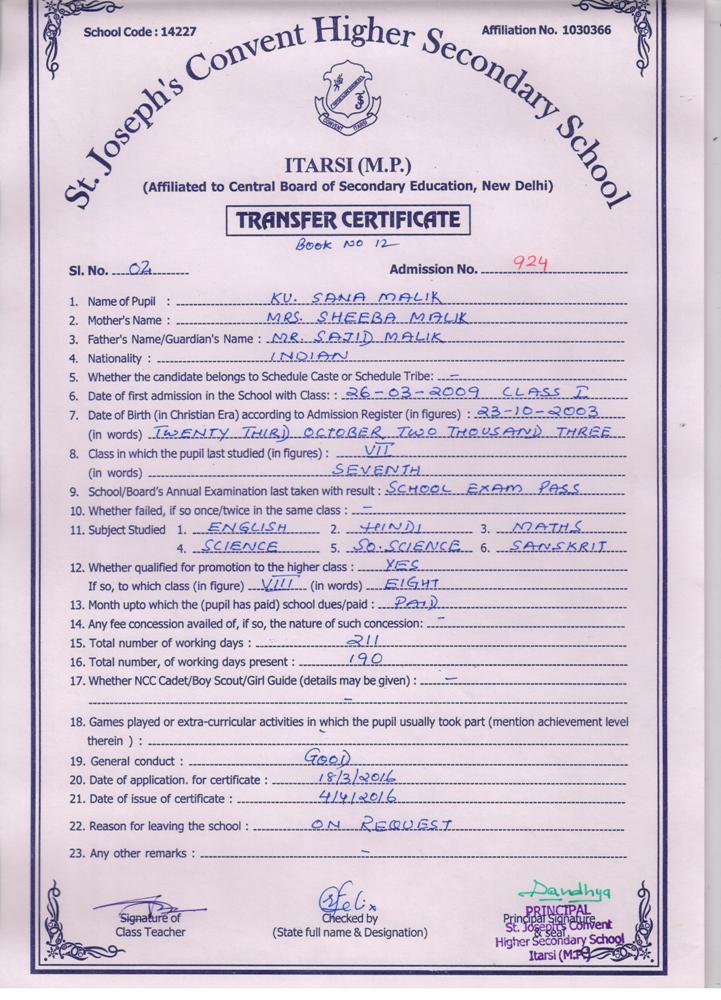 School Code : 14227
Affiliation No. 1030366
St. Joseph's Convent Higher Secondary School
ITARSI (M.P.)
(Affiliated to Central Board of Secondary Education, New Delhi)
TRANSFER CERTIFICATE
BOOK NO 12
Sl. No. 02 Admission No. 924
1. Name of Pupil : KU. SANA MALIK
2. Mother's Name : MRS. SHEEBA MALIK
3. Father's Name/Guardian's Name : MR. SAJID MALIK
4. Nationality : INDIAN
5. Whether the candidate belongs to Schedule Caste or Schedule Tribe: –
6. Date of first admission in the School with Class: : 26-03-2009 CLASS I
7. Date of Birth (in Christian Era) according to Admission Register (in figures) : 23-10-2003
(in words) TWENTY THIRD OCTOBER TWO THOUSAND THREE
8. Class in which the pupil last studied (in figures) : VII
(in words) SEVENTH
9. School/Board's Annual Examination last taken with result : SCHOOL EXAM PASS
10. Whether failed, if so once/twice in the same class : –
11. Subject Studied 1. ENGLISH 2. HINDI 3. MATHS
4. SCIENCE 5. SO.SCIENCE 6. SANSKRIT
12. Whether qualified for promotion to the higher class : YES
If so, to which class (in figure) VIII (in words) EIGHT
13. Month upto which the (pupil has paid) school dues/paid : PAID
14. Any fee concession availed of, if so, the nature of such concession: –
15. Total number of working days : 211
16. Total number, of working days present : 190
17. Whether NCC Cadet/Boy Scout/Girl Guide (details may be given) : –
–
18. Games played or extra-curricular activities in which the pupil usually took part (mention achievement level
therein ) :
19. General conduct : GOOD
20. Date of application. for certificate : 18/3/2016
21. Date of issue of certificate : 4/4/2016
22. Reason for leaving the school : ON REQUEST
23. Any other remarks : –
Felix
Signature of
Class Teacher
Checked by
(State full name & Designation)
Principal Signature
& seal
PRINCIPAL
St. Joseph's Convent
Higher Secondary School
Itarsi (M.P.)